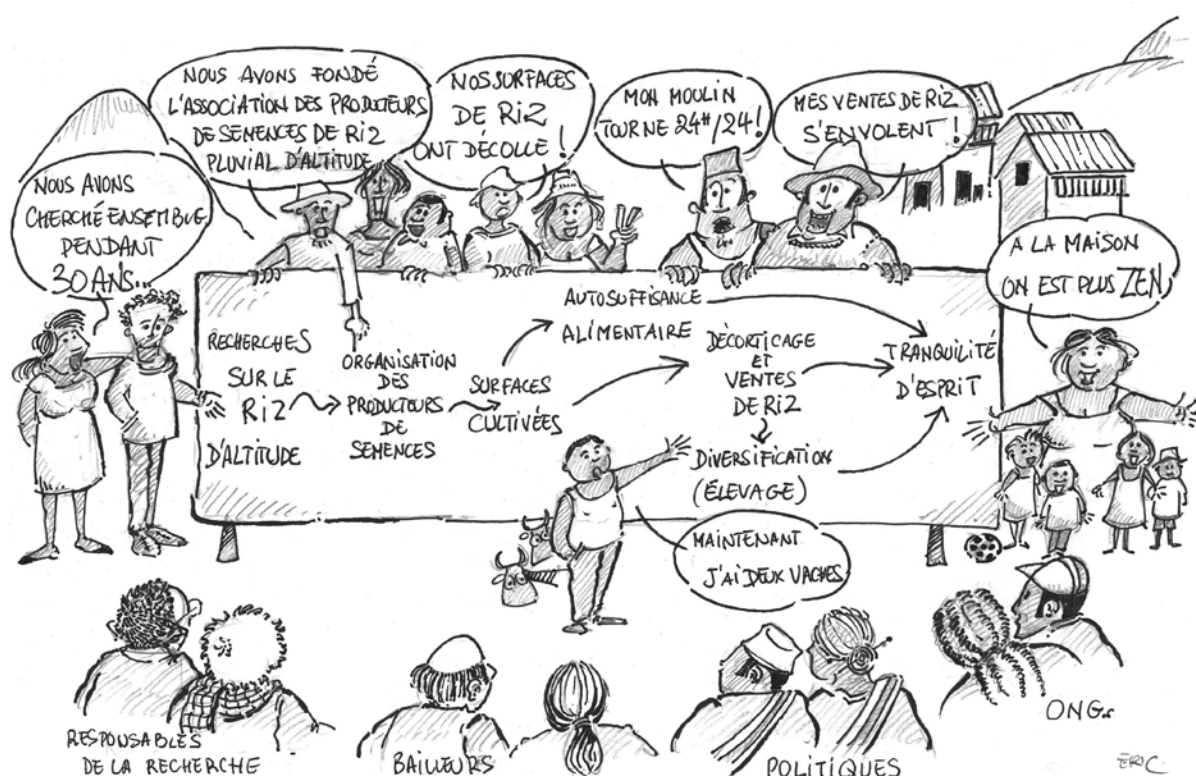 NOUS AVONS FONDÉ
L'ASSOCIATION DES PRODUCTEURS
DE SEMENCES DE RIZ
PLUVIAL D'ALTITUDE
NOS SURFACES
DE RIZ
ONT DÉCOLLÉ !
MON MOULIN
TOURNE 24H/24!
MES VENTES DE RIZ
S'ENVOLENT !
NOUS AVONS
CHERCHÉ ENSEMBLE
PENDANT
30 ANS...
A LA MAISON
ON EST PLUS ZEN
RECHERCHES
SUR LE
RIZ
D'ALTITUDE
ORGANISATION
DES
PRODUCTEURS
DE
SEMENCES
SURFACES
CULTIVÉES
AUTOSUFFISANCE
ALIMENTAIRE
DÉCORTICAGE
ET
VENTES
DE RIZ
DIVERSIFICATION
(ÉLEVAGE)
TRANQUILITÉ
D'ESPRIT
MAINTENANT
J'AI DEUX VACHES
RESPONSABLES
DE LA RECHERCHE
BAILLEURS
POLITIQUES
ONGs
ERIC